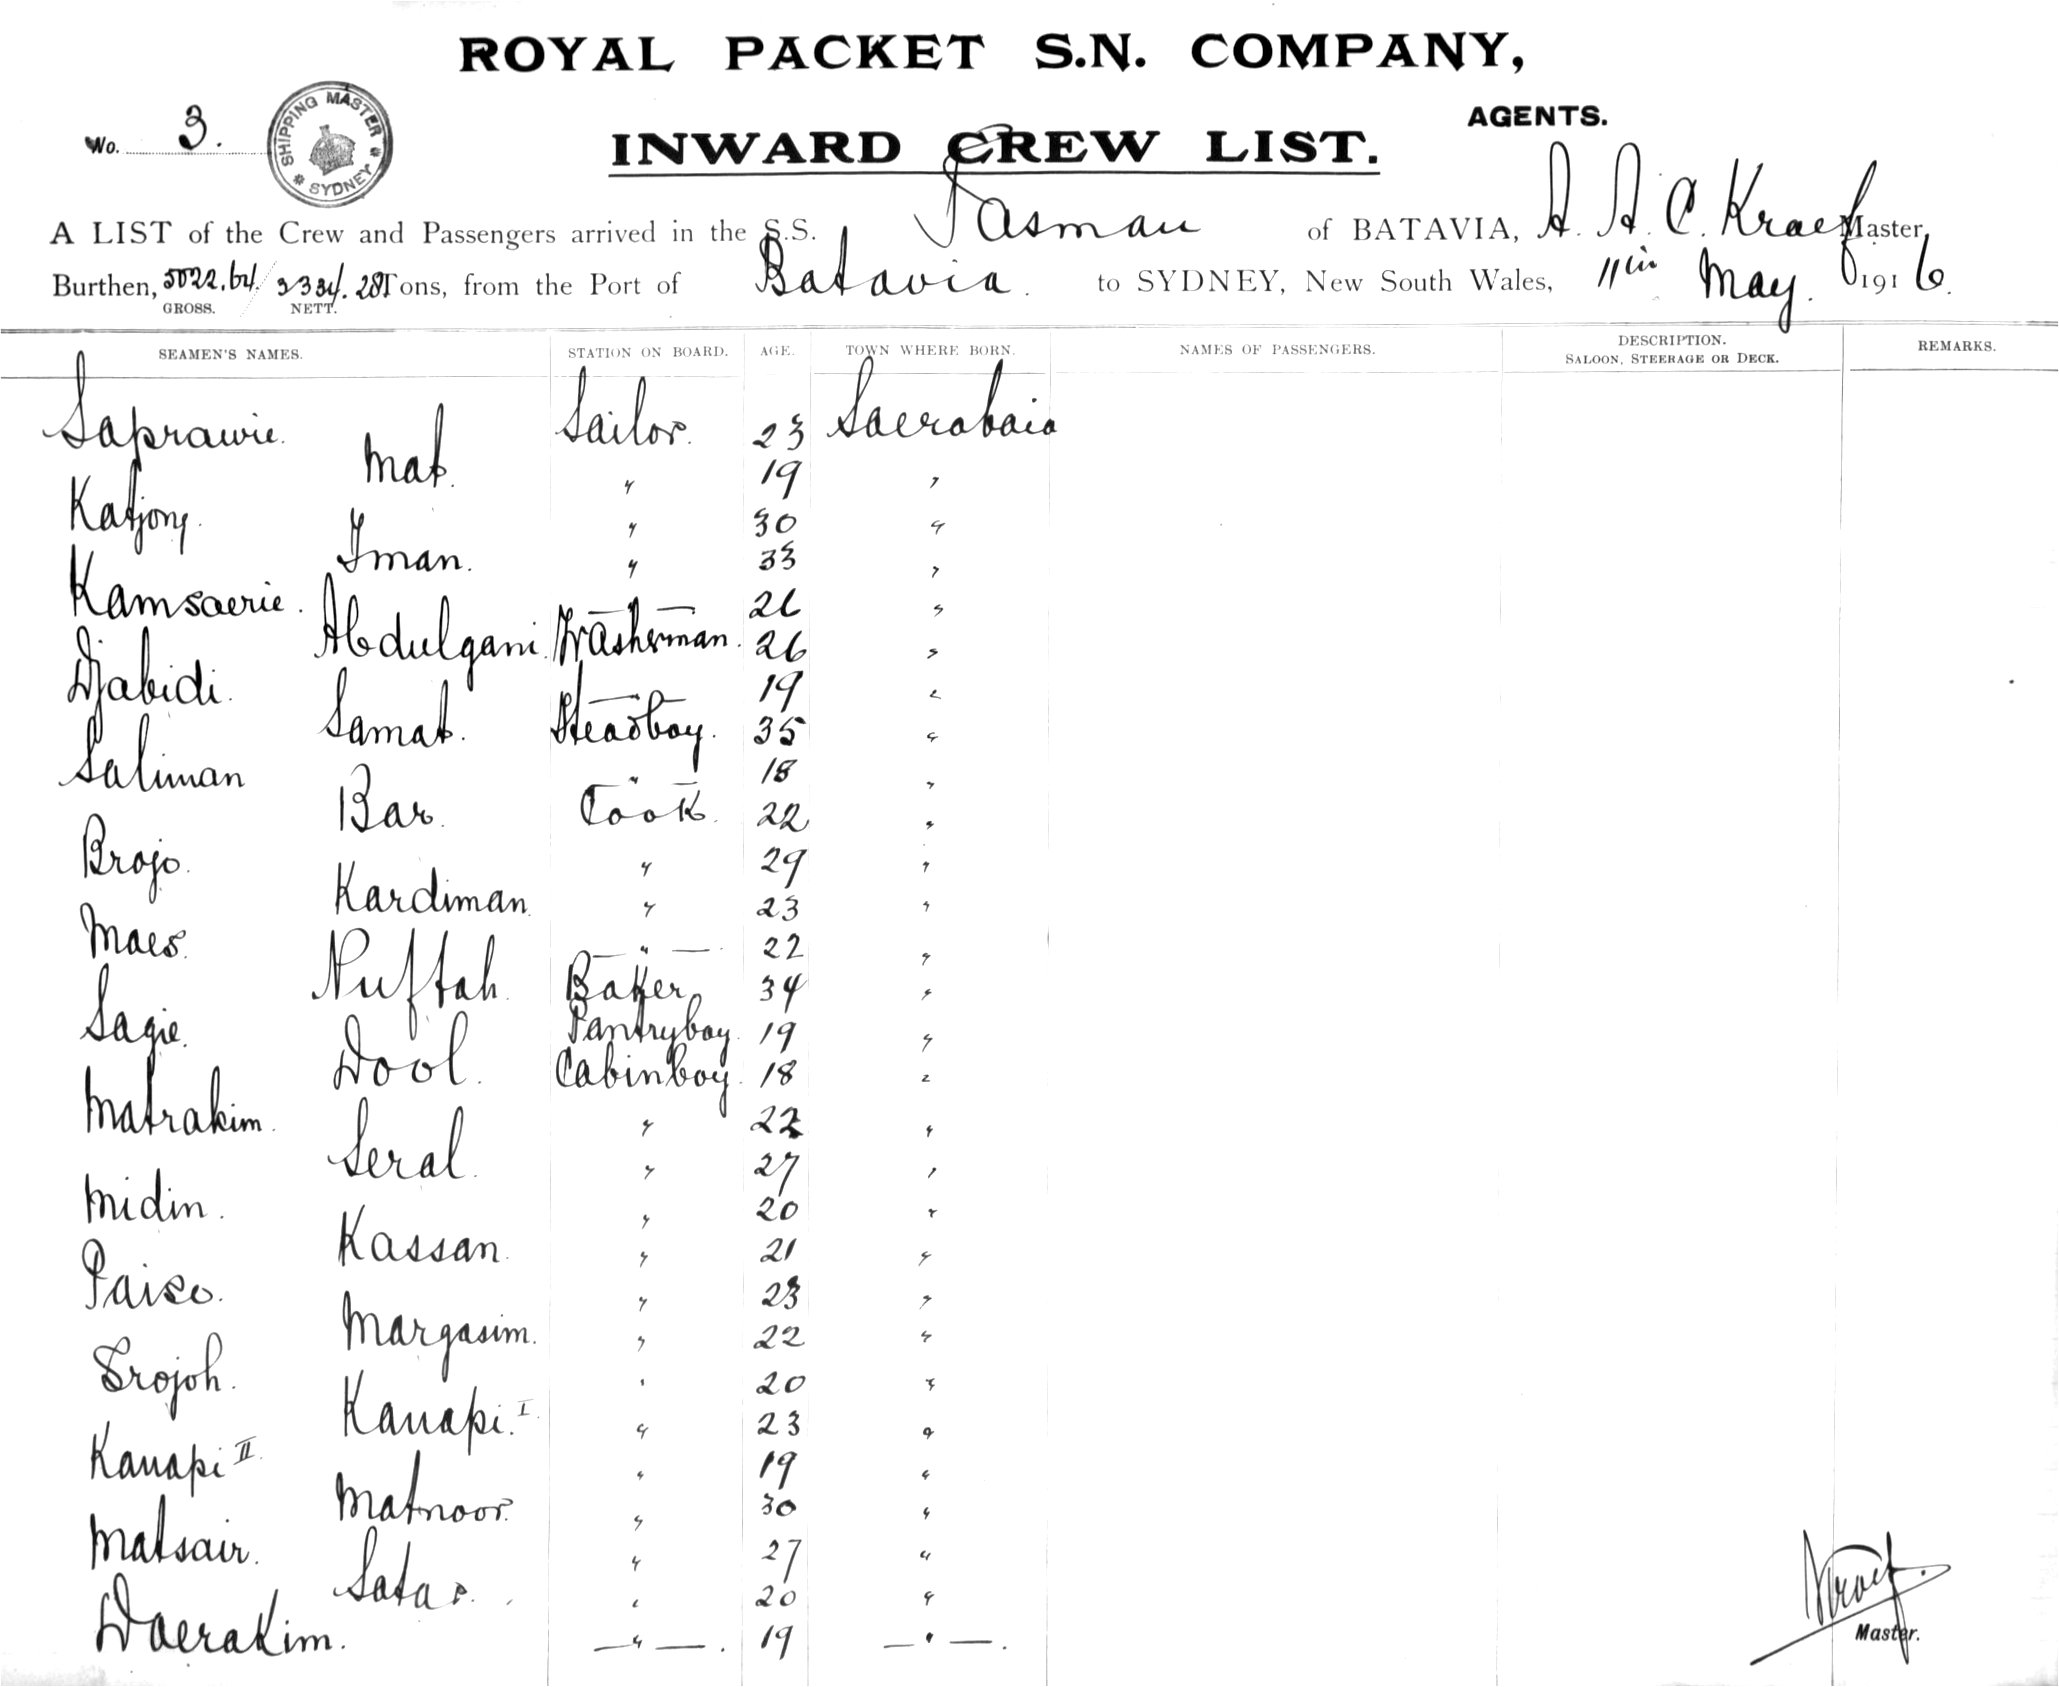 ROYAL PACKET S.N. COMPANY,
AGENTS.
No. 3.
SHIPPING MASTER SYDNEY
INWARD CREW LIST.
A LIST of the Crew and Passengers arrived in the S.S. Tasman of BATAVIA, A. A. C. Kraef Master,
Burthen, 5022.64/ 2334.28 Tons, from the Port of Batavia. to SYDNEY, New South Wales, 11th May. 1916.
GROSS. NETT.
SEAMEN'S NAMES. STATION ON BOARD. AGE. TOWN WHERE BORN. NAMES OF PASSENGERS. DESCRIPTION. SALOON, STEERAGE OR DECK. REMARKS.
Saprawie. Sailor. 23 Soerabaia
Mat. " 19 "
Katjong. " 30 "
Iman. " 33 "
Kamsaerie. " 26 "
Abdulgani. Washerman. 26 "
Djabidi. " 19 "
Samat. Headboy. 35 "
Saliman " 18 "
Bar. Cook. 22 "
Brojo. " 29 "
Kardiman. " 23 "
Maes. " 22 "
Nuftah. Baker. 34 "
Sagie. Pantryboy. 19 "
Dool. Cabinboy. 18 "
Matrakim. " 22 "
Seral. " 27 "
Midin. " 20 "
Kassan. " 21 "
Paiso. " 23 "
Margasim. " 22 "
Srojoh. " 20 "
Kanapi. I " 23 "
Kanapi II " 19 "
Matnoor. " 30 "
Matsair. " 27 "
Satar. " 20 "
Doerakim. " 19 "
Kraef.
Master.